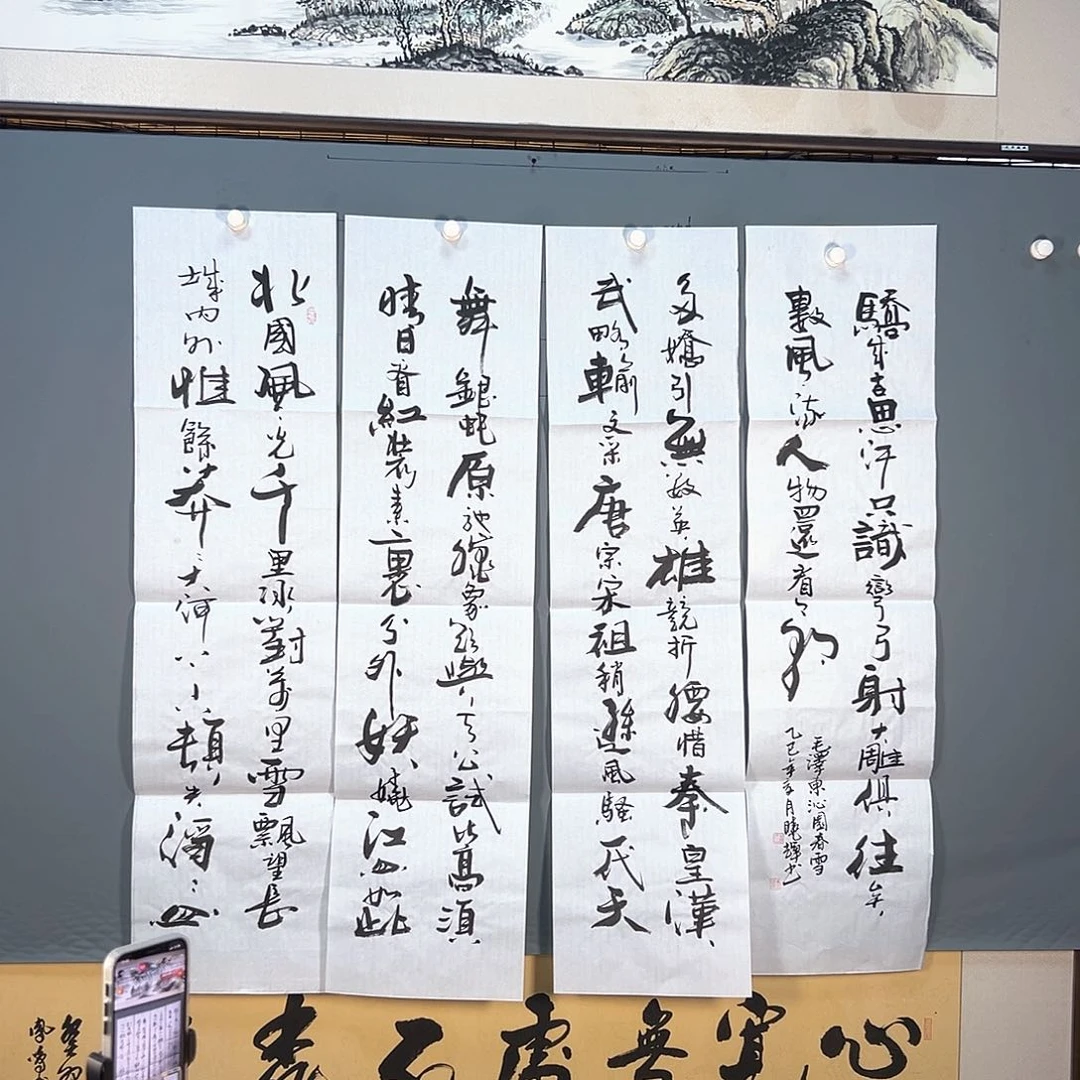 北國風光千里冰封萬里雪飄望長
城内外惟餘莽々大河上下頓失滔々山
舞銀蛇原馳蠟象欲與天公試比高須
晴日看紅裝素裹分外妖嬈江山如此
多嬌引無數英雄競折腰惜秦皇漢
武略輸文采唐宗宋祖稍遜風騷一代天
驕成吉思汗只識彎弓射大雕俱往矣
數風流人物還看今朝
毛澤東沁園春雪
乙巳年五月曉輝书
心寬無處不